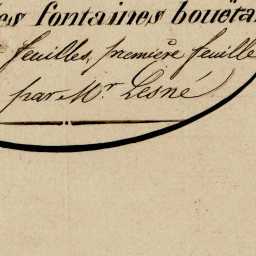 les fontaines bouëta
feuilles, première feuille
par Mr. Lesné